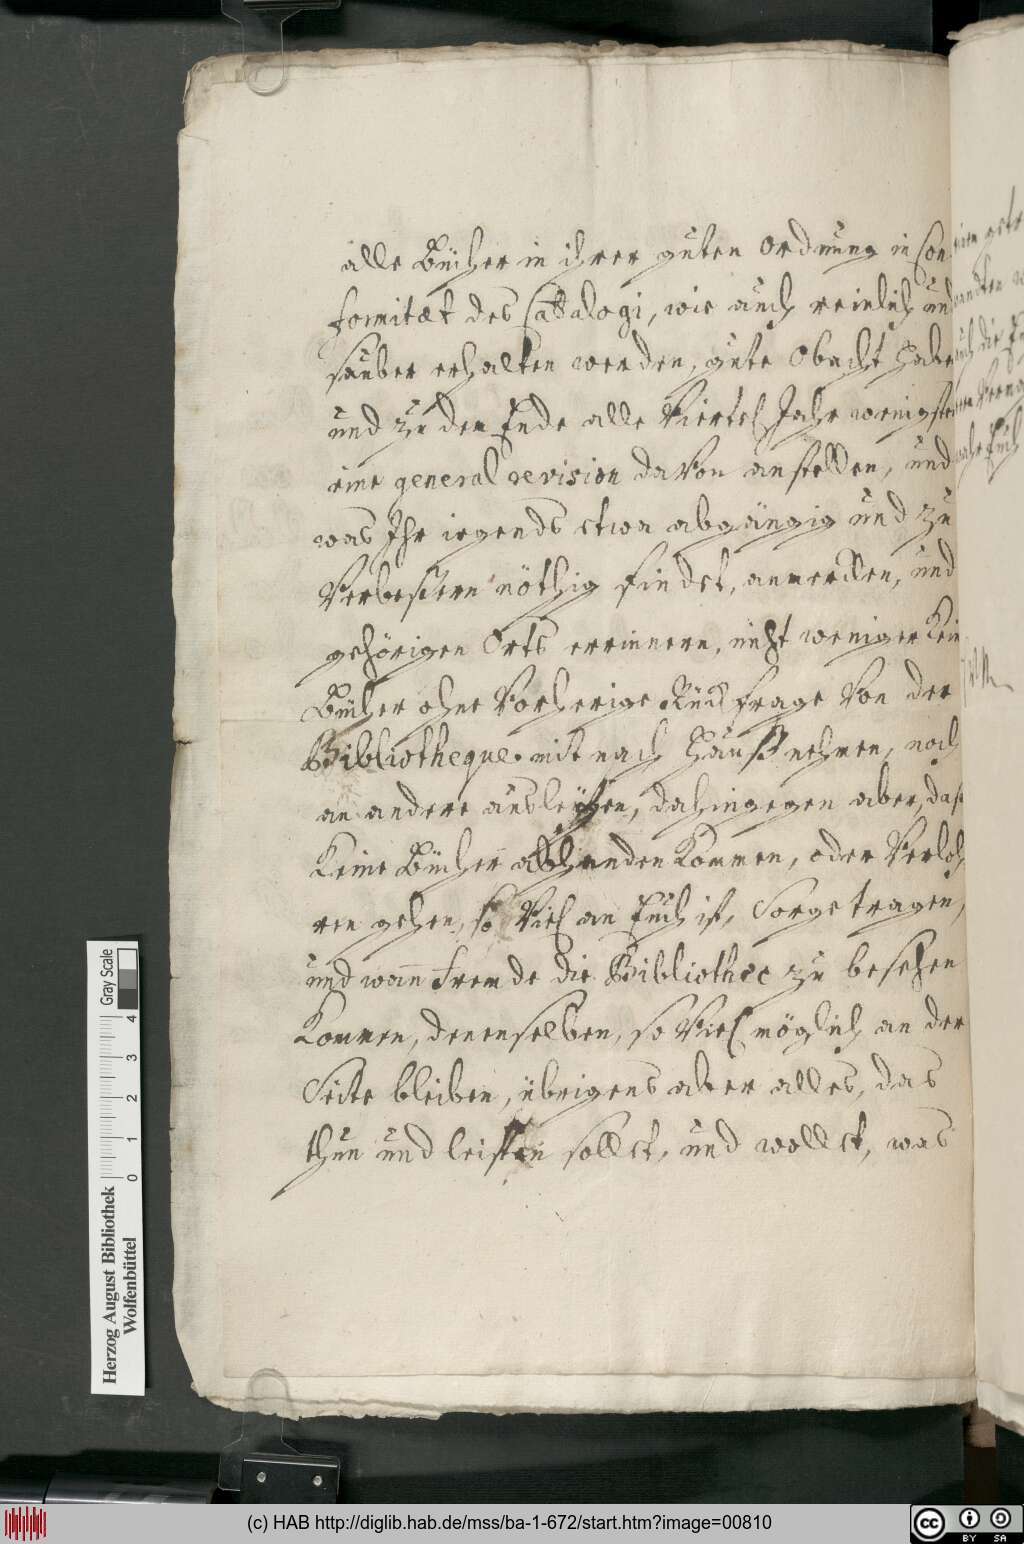 alle Bücher in ihrer guten Ordnung in Con
formitæt des Catalogi, wie auch reinlich und
sauber erhalten werden, gute Obacht habe
und zu dem Ende alle Viertel Jahr wenigste
eine general revision davon anstellen, und
was Ihr irgends etwa abgängig und zu
Verbeßern nöthig findet, anmercken, und
gehörigen Orts errinnern, nicht weniger Kein
Bücher ohne Vorherige Rückfrage Von der
Bibliotheque mit nach Hauß nehmen, noch
an andere ausleyhen, dahingegen aber, daß
Keine Bücher abhanden Kommen, oder Verloh
ren gehen, so Viel an Euch ist, Sorge tragen,
und wann fremde die Bibliothec zu besehen
Kommen, denenselben, so Viel möglich an der
Seite bleiben, übrigens aber alles, das
thun und leisten sollet, und wollet, was
Herzog August Bibliothek
Wolfenbüttel
0 1 2 3 4
Gray Scale
(c) HAB http://diglib.hab.de/mss/ba-1-672/start.htm?image=00810
cc BY SA